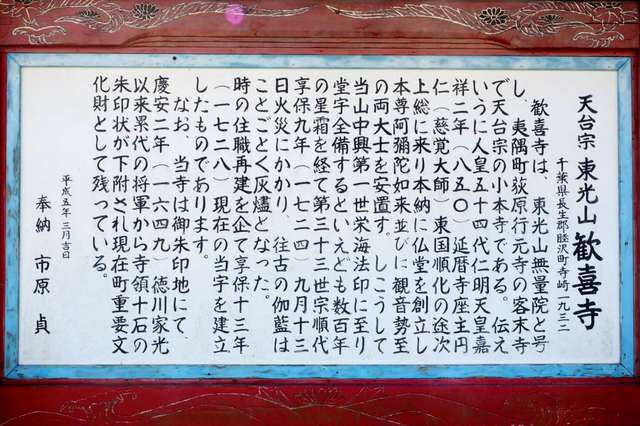 天台宗 東光山 歓喜寺
千葉県長生郡睦沢町寺崎一九三二
歓喜寺は、東光山無量院と号
し、夷隅町荻原行元寺の客末寺
で天台宗の小本寺である。伝え
いうに人皇五十四代仁明天皇嘉
祥二年（八五〇）延暦寺座主円
仁（慈覚大師）東国順化の途次
上総に来り本納に仏堂を創立し
本尊阿彌陀如来並びに観音勢至
の両大士を安置す。しこうして
当山中興第一世栄海法印に至り
堂宇全備するといえども数百年
の星霜を経て第三十三世宗順代
享保九年（一七二四）九月十三
日火災にかかり、往古の伽藍は
ことごとく灰燼となった。
時の住職再建を企て享保十三年
（一七二八）現在の当宇を建立
したものであります。
なお、当寺は御朱印地にて、
慶安二年（一六四九）徳川家光
以来累代の将軍から寺領十石の
朱印状が下附され現在町重要文
化財として残っている。
平成五年三月吉日
奉納 市原 貞